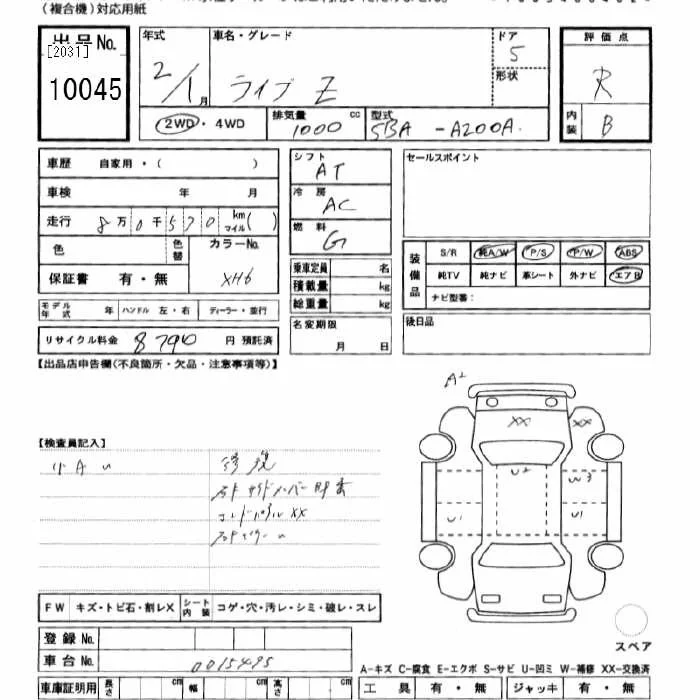 (複合機)対応用紙
出品No.
[2031]
10045
年式
2/1月
車名・グレード
ライブ Z
ドア
5
形状
評価点
R
内装
B
2WD・4WD
排気量
1000 cc
型式
5BA -A200A
車歴 自家用・( )
車検 年 月
走行 8万0千570 km マイル( )
色
色替
カラーNo.
XH6
保証書 有・無
モデル年式 年
ハンドル 左・右
ディーラー・並行
リサイクル料金 8790 円 預託済
シフト
AT
冷房
AC
燃料
G
乗車定員 名
積載量 kg
総重量 kg
名変期限
月 日
セールスポイント
装備品
S/R 純A/W P/S P/W ABS
純TV 純ナビ 革シート 外ナビ エアB
ナビ型番:
後日品
【出品店申告欄(不良箇所・欠品・注意事項等)】
【検査員記入】
小A U
修復
XX
A2
XX
XX
U2
W3
U1
U1
FW キズ・トビ石・割レX
シート内装 コゲ・穴・汚レ・シミ・破レ・スレ
スペア
登録No.
車台No. 0015495
A-キズ C-腐食 E-エクボ S-サビ U-凹ミ W-補修 XX-交換済
車庫証明用 長さ cm 幅 cm 高さ cm
工具 有・無 ジャッキ 有・無